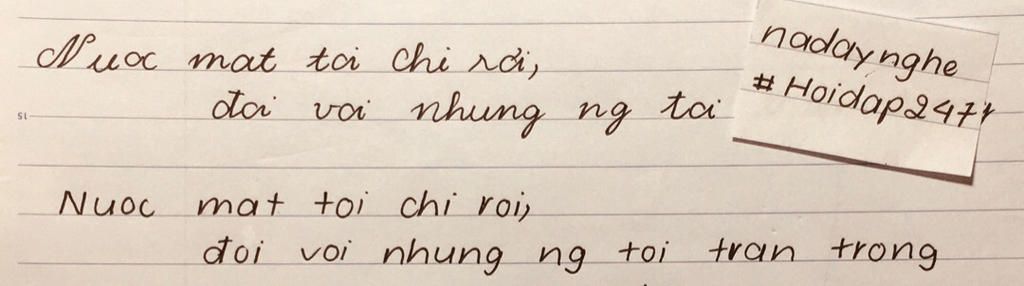 Nuoc mat toi chi rơi,
đoi voi nhung ng toi
nadaynghe
#Hoidap247
Nuoc mat toi chi roi,
đoi voi nhung ng toi tran trong